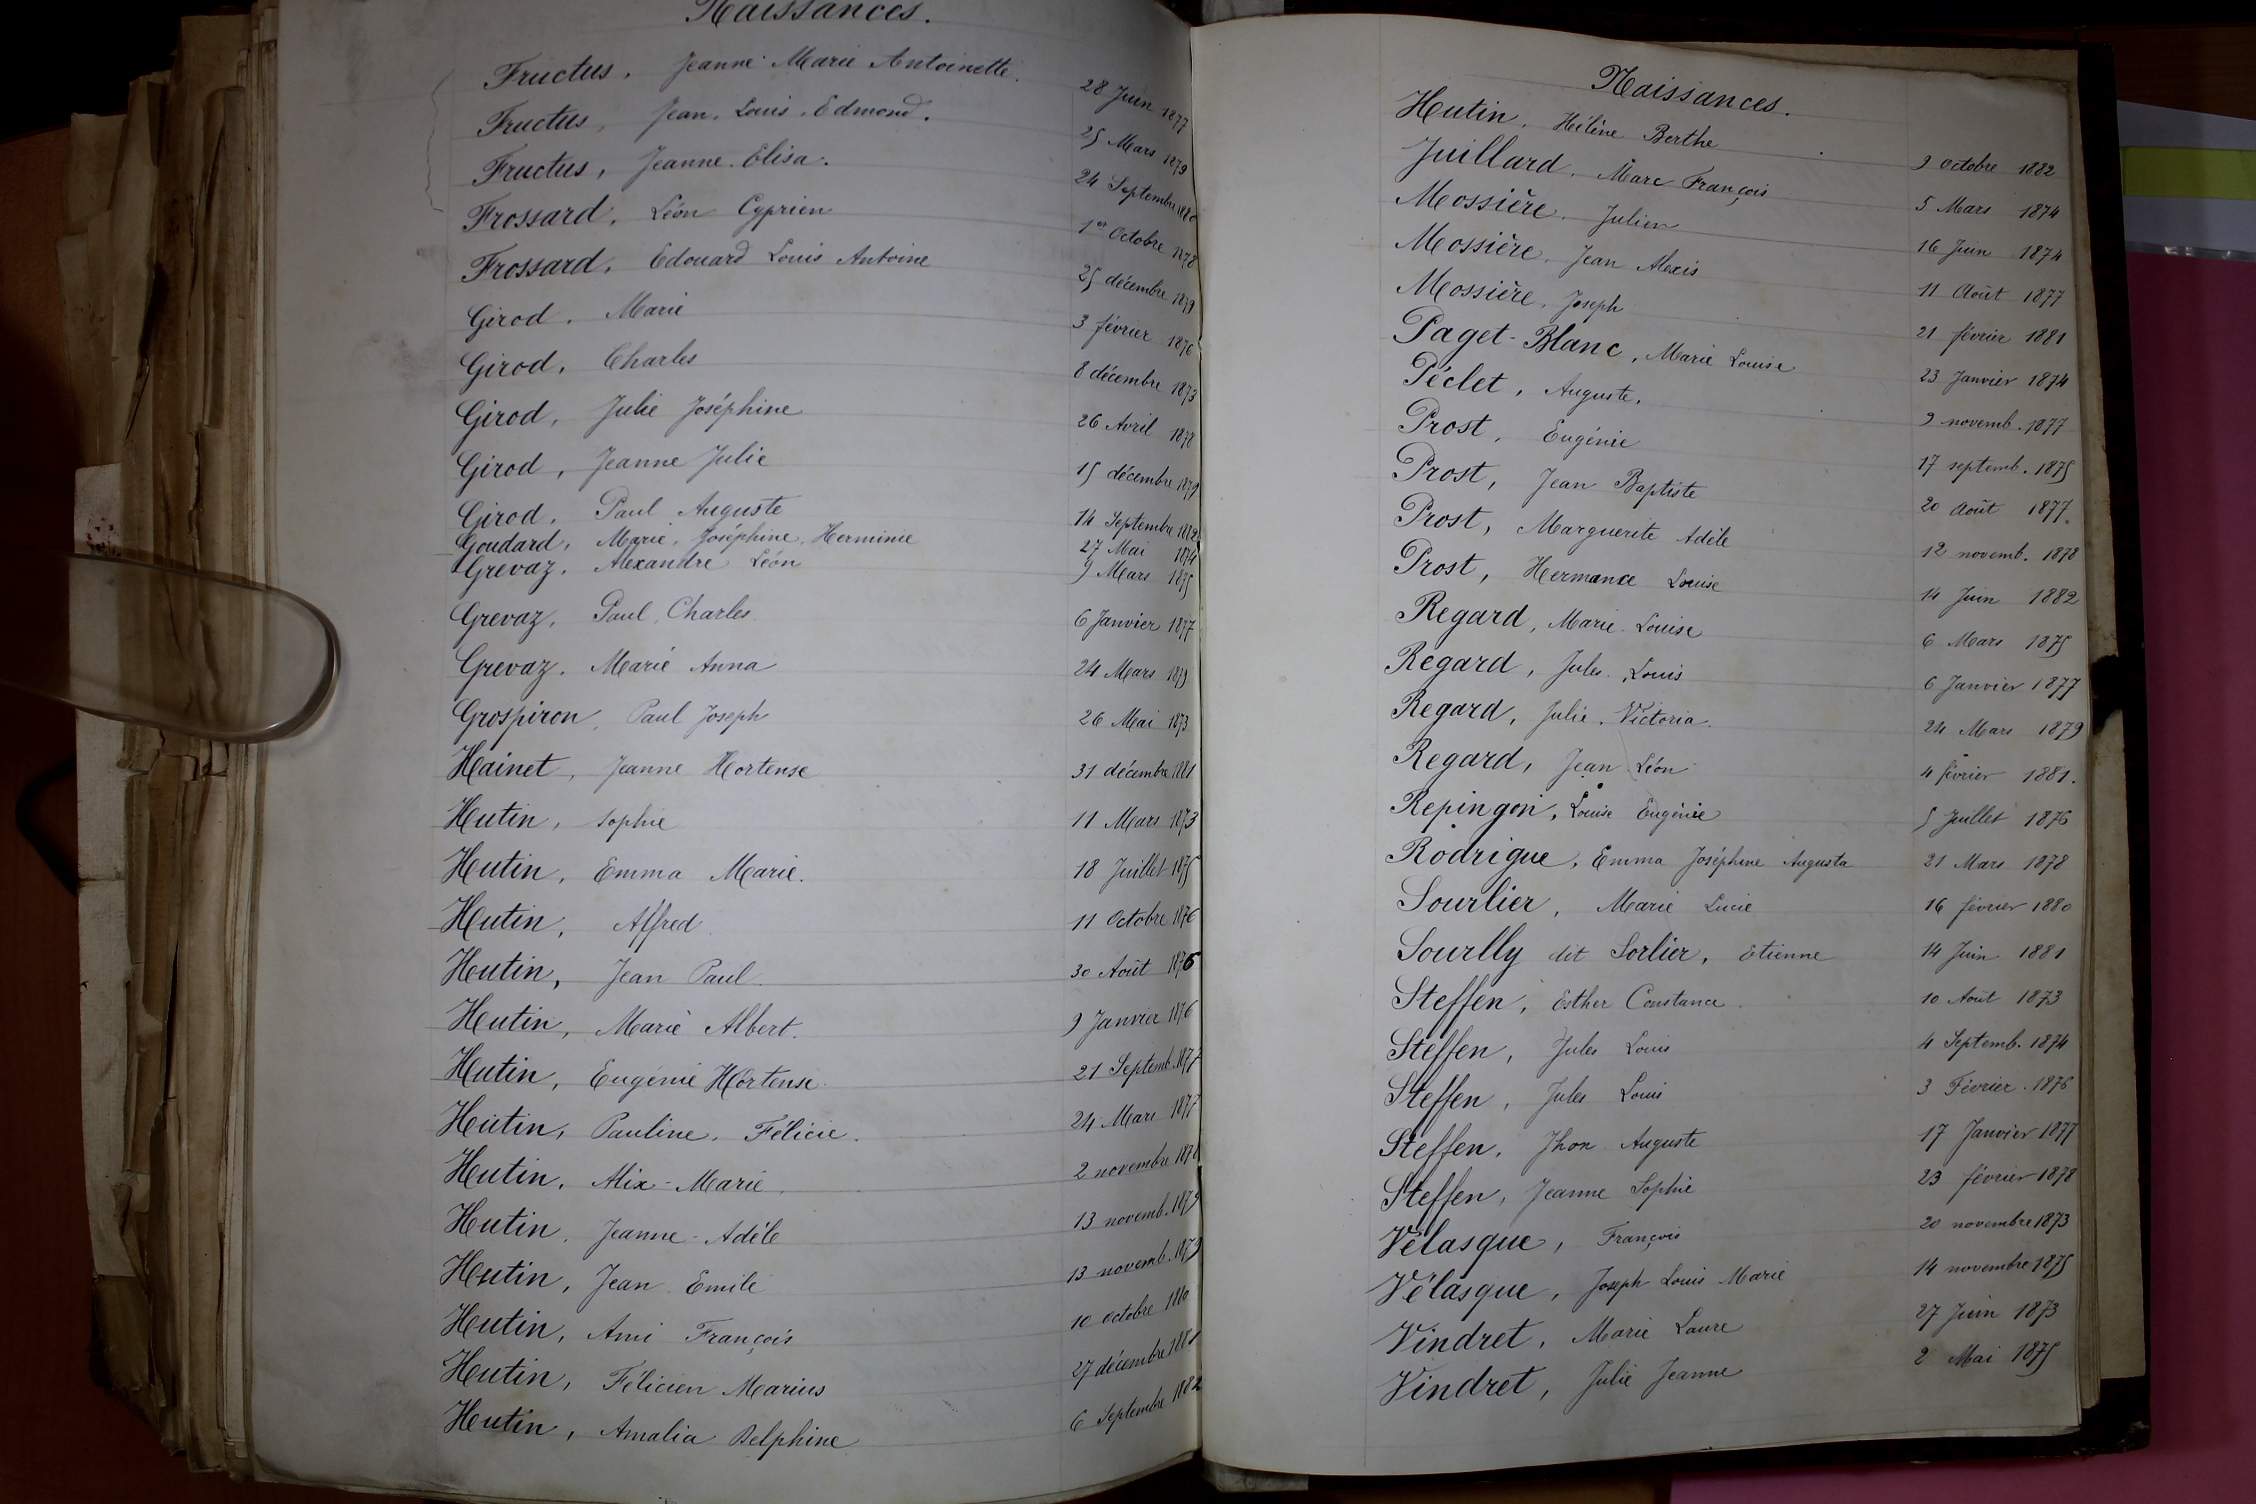 Naissances.
Fructus, Jeanne Marie Antoinette. 28 Juin 1877
Fructus, Jean, Louis, Edmond. 25 Mars 1879
Fructus, Jeanne Elisa. 24 Septembre 1880
Frossard, Léon Cyprien 1er Octobre 1878
Frossard, Edouard Louis Antoine 25 décembre 1879
Girod, Marie 3 février 1876
Girod, Charles 8 décembre 1873
Girod, Julie Joséphine 26 Avril 1878
Girod, Jeanne Julie 15 décembre 1879
Girod, Paul Auguste 14 Septembre 1882
Goudard, Marie, Joséphine, Herminie 27 Mai 1874
Grevaz, Alexandre Léon 9 Mars 1875
Grevaz, Paul, Charles 6 Janvier 1877
Grevaz, Marie Anna 24 Mars 1879
Grospiron, Paul Joseph 26 Mai 1873
Hainet, Jeanne Hortense 31 décembre 1881
Hutin, Sophie 11 Mars 1873
Hutin, Emma Marie. 18 Juillet 1875
Hutin, Alfred 11 Octobre 1876
Hutin, Jean Paul 30 Août 1876
Hutin, Marie Albert. 9 Janvier 1876
Hutin, Eugénie Hortense. 21 Septemb. 1877
Hutin, Pauline, Félicie. 24 Mars 1877
Hutin, Alix-Marie 2 novembre 1878
Hutin, Jeanne-Adèle 13 novemb. 1879
Hutin, Jean Emile 13 novemb. 1879
Hutin, Ami François 10 octobre 1880
Hutin, Félicien Marius 27 décembre 1881
Hutin, Amalia Delphine 6 Septembre 1882
Naissances.
Hutin, Hélène Berthe 9 Octobre 1882
Juillard, Marc François 5 Mars 1874
Mossière, Julien 16 Juin 1874
Mossière, Jean Alexis 11 Août 1877
Mossière, Joseph 21 février 1881
Paget-Blanc, Marie Louise 23 Janvier 1874
Péclet, Auguste, 9 novemb. 1877
Prost, Eugénie 17 septemb. 1875
Prost, Jean Baptiste 20 Août 1877
Prost, Marguerite Adèle 12 novemb. 1878
Prost, Hermance Louise 14 Juin 1882
Regard, Marie Louise 6 Mars 1875
Regard, Jules Louis 6 Janvier 1877
Regard, Julie Victoria 24 Mars 1879
Regard, Jean Léon 4 février 1881.
Repingon, Louise Eugénie 5 Juillet 1876
Rodrigue, Emma Joséphine Augusta 21 Mars 1878
Sourlier, Marie Lucie 16 février 1880
Sourlly dit Sorlier, Etienne 14 Juin 1881
Steffen, Esther Constance 10 Août 1873
Steffen, Jules Louis 4 Septemb. 1874
Steffen, Jules Louis 3 Février 1876
Steffen, Jhon Auguste 17 Janvier 1877
Steffen, Jeanne Sophie 23 février 1878
Vélasque, François 20 novembre 1873
Vélasque, Joseph Louis Marie 14 novembre 1875
Vindret, Marie Laure 27 Juin 1873
Vindret, Julie Jeanne 2 Mai 1875